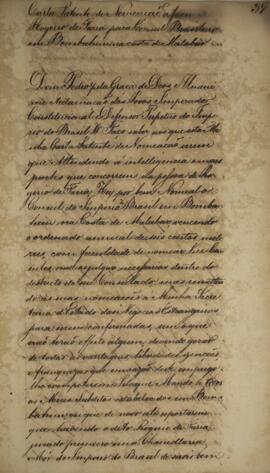 34
Carta Patente de Nomeação a favor de
Rogerio de Faria para Consul Brasileiro
em Bombahim na costa de Malabar
Dom Pedro pela Graça de Deos e Unani-
me Acclamação dos Povos Imperador
Constitucional e Defensor Perpetuo do Impe-
rio do Brasil &c Faço saber aos que esta Mi-
nha Carta Patente de Nomeação virem
que Attendendo á intelligencia e mais
partes que concorrem na pessoa de Ro-
gerio de Faria, Hey por bem Nomeal-o
Consul do Imperio do Brasil em Bomba-
him na Costa de Malabar, vencendo
o ordenado annual de seis centos mil
reis, com faculdade de nomear Vice Con-
sules, onde julgue necessarios dentro do
districto do seu Consulado, mas remetten-
do as suas nomeações á Minha Secre-
taria d'Estado dos Negocios Estrangeiros
para serem confirmadas, sem o que
não terão effeito algum, devendo gozar
de todas as vantagens, liberdades, izenções
e franquezas que em razão deste empre-
go lhe competirem. Pelo que Mando a todos
os Meus Subditos estabelecidos em Bom-
bahim, ou que de novo ali aportarem
que hajam o dito Rogerio de Faria
jurado primeiro na Chancellaria
Mór do Imperio do Brasil de que bem